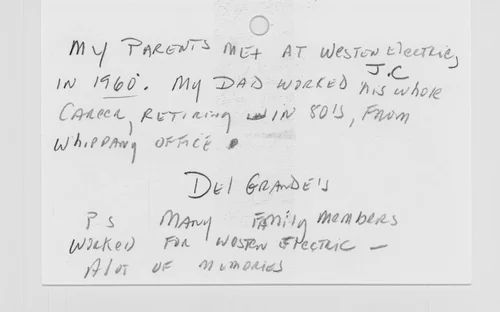 My PARENTS MEt AT Westen Electric,
J.C
IN 1960. My DAD WORKED his whole
CAREER, RETIRING IN 80's, FROM
Whippany OFFICE.
Del GRANDE's
PS MANY FAmily members
WORKED FOR WESTEN ElECTRIC —
Alot OF MEMORIES